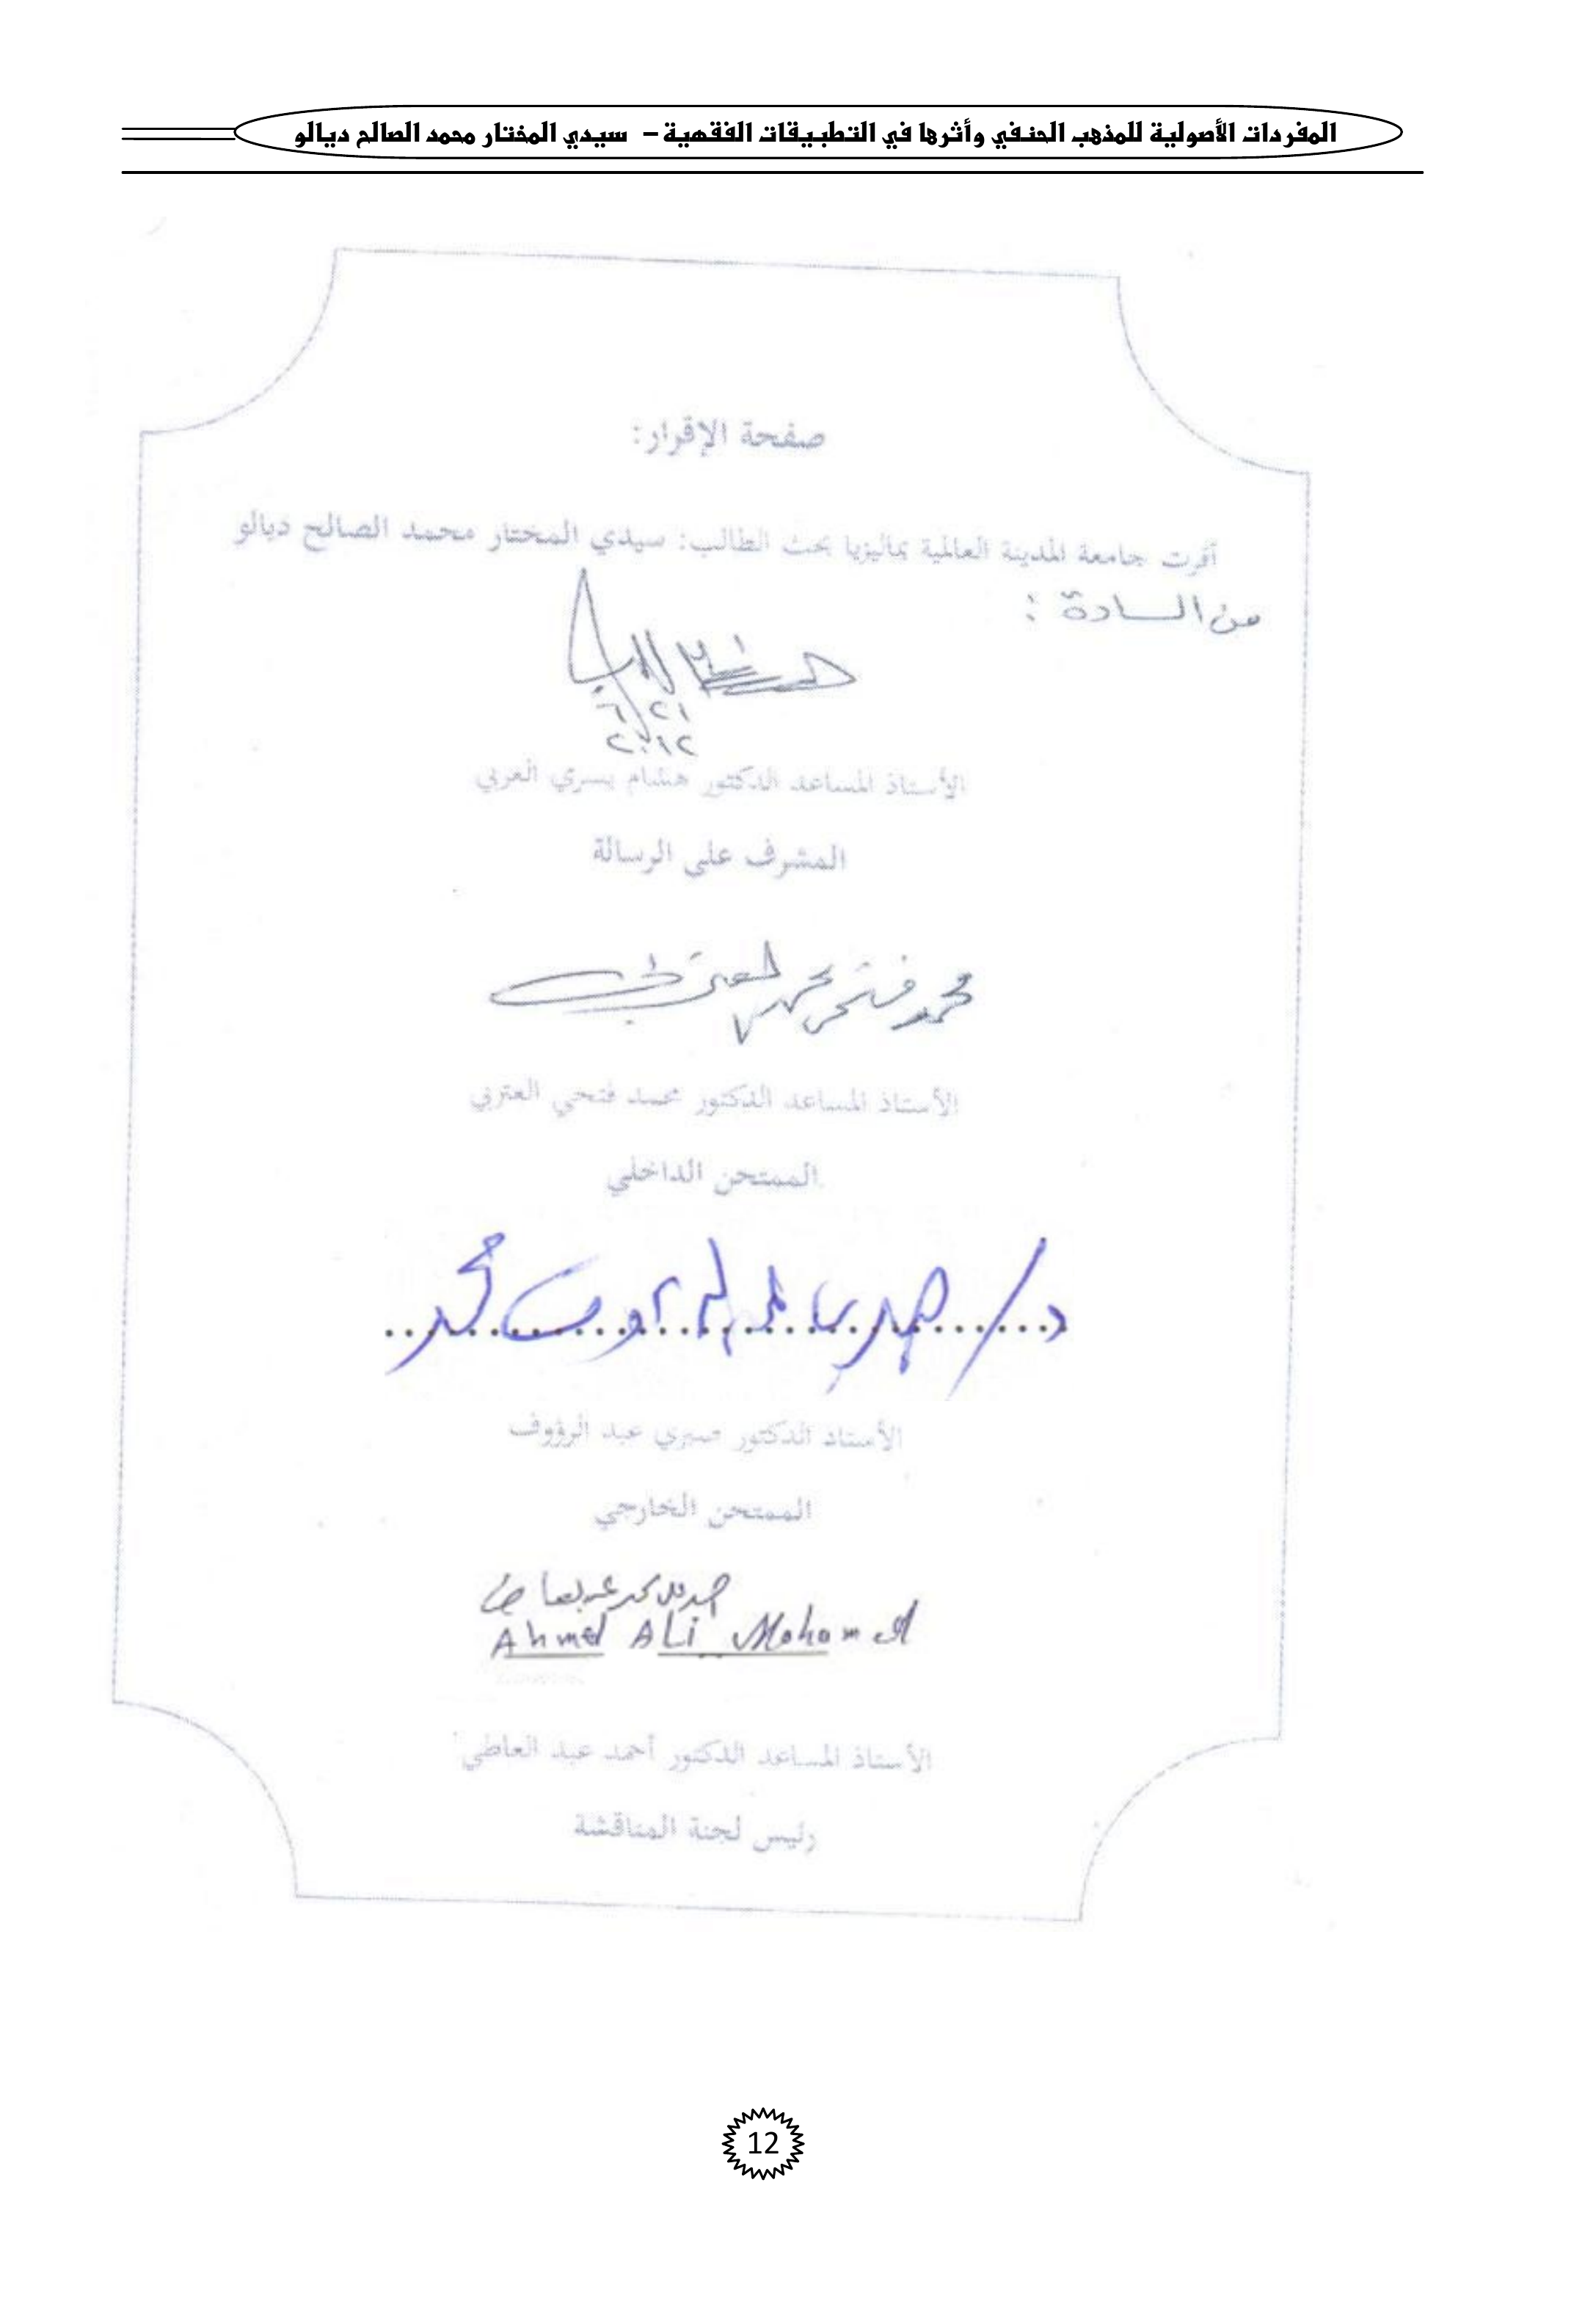 المفردات الأصولية للمذهب الحنفي وأثرها في التطبيقات الفقهية – سيدي المختار محمد الصالح ديالو
صفحة الإقرار:
أقرت جامعة المدينة العالمية بماليزيا بحث الطالب: سيدي المختار محمد الصالح ديالو
من السادة :
٢١/٦
٢٠١٢
الأستاذ المساعد الدكتور هشام يسري العربي
المشرف على الرسالة
محمد فتحي محمد العتربي
الأستاذ المساعد الدكتور محمد فتحي العتربي
الممتحن الداخلي
د/ صبري عبد الرؤوف محمد
الأستاذ الدكتور صبري عبد الرؤوف
الممتحن الخارجي
Ahmed ALi Mohomed
الأستاذ المساعد الدكتور أحمد عبد العاطي
رئيس لجنة المناقشة
12